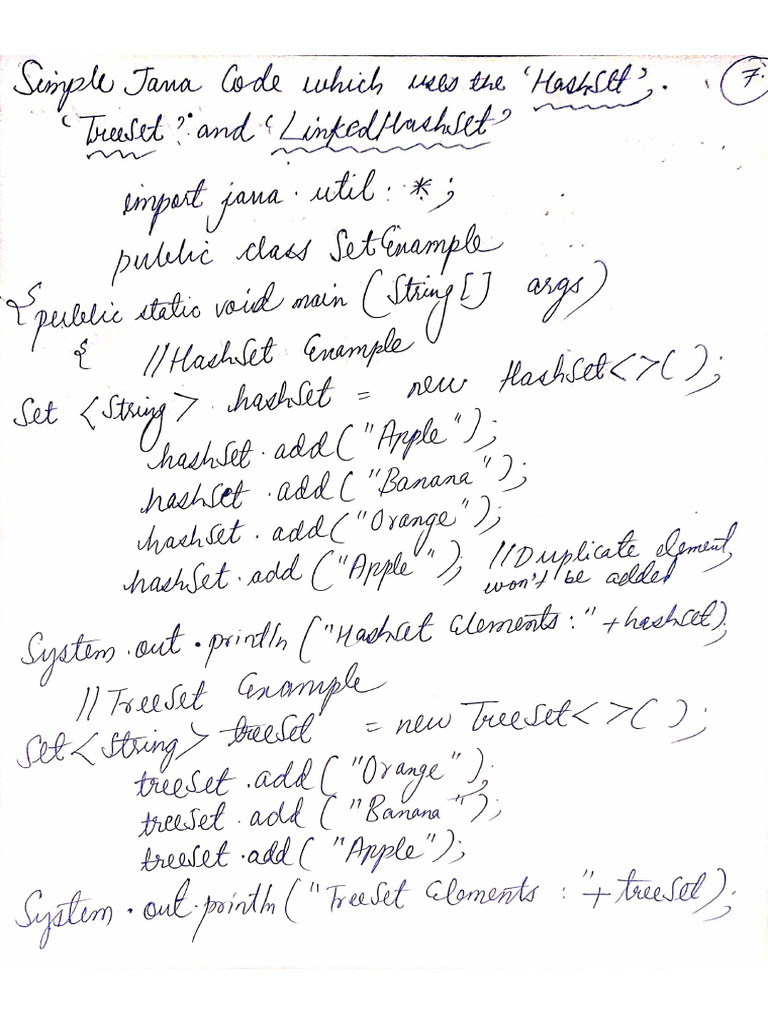 Simple Java Code which uses the 'HashSet', 7.
'TreeSet' and 'LinkedHashSet'
import java.util.*;
public class SetExample
{ public static void main (String[] args)
{ //HashSet Example
Set <String> hashSet = new HashSet<>();
hashSet.add("Apple");
hashSet.add("Banana");
hashSet.add("Orange");
hashSet.add("Apple"); //Duplicate element,
won't be added
System.out.println("HashSet Elements:"+hashSet);
//TreeSet Example
Set<String> treeSet = new TreeSet<>();
treeSet.add("Orange");
treeSet.add("Banana");
treeSet.add("Apple");
System.out.println("TreeSet Elements:"+treeSet);